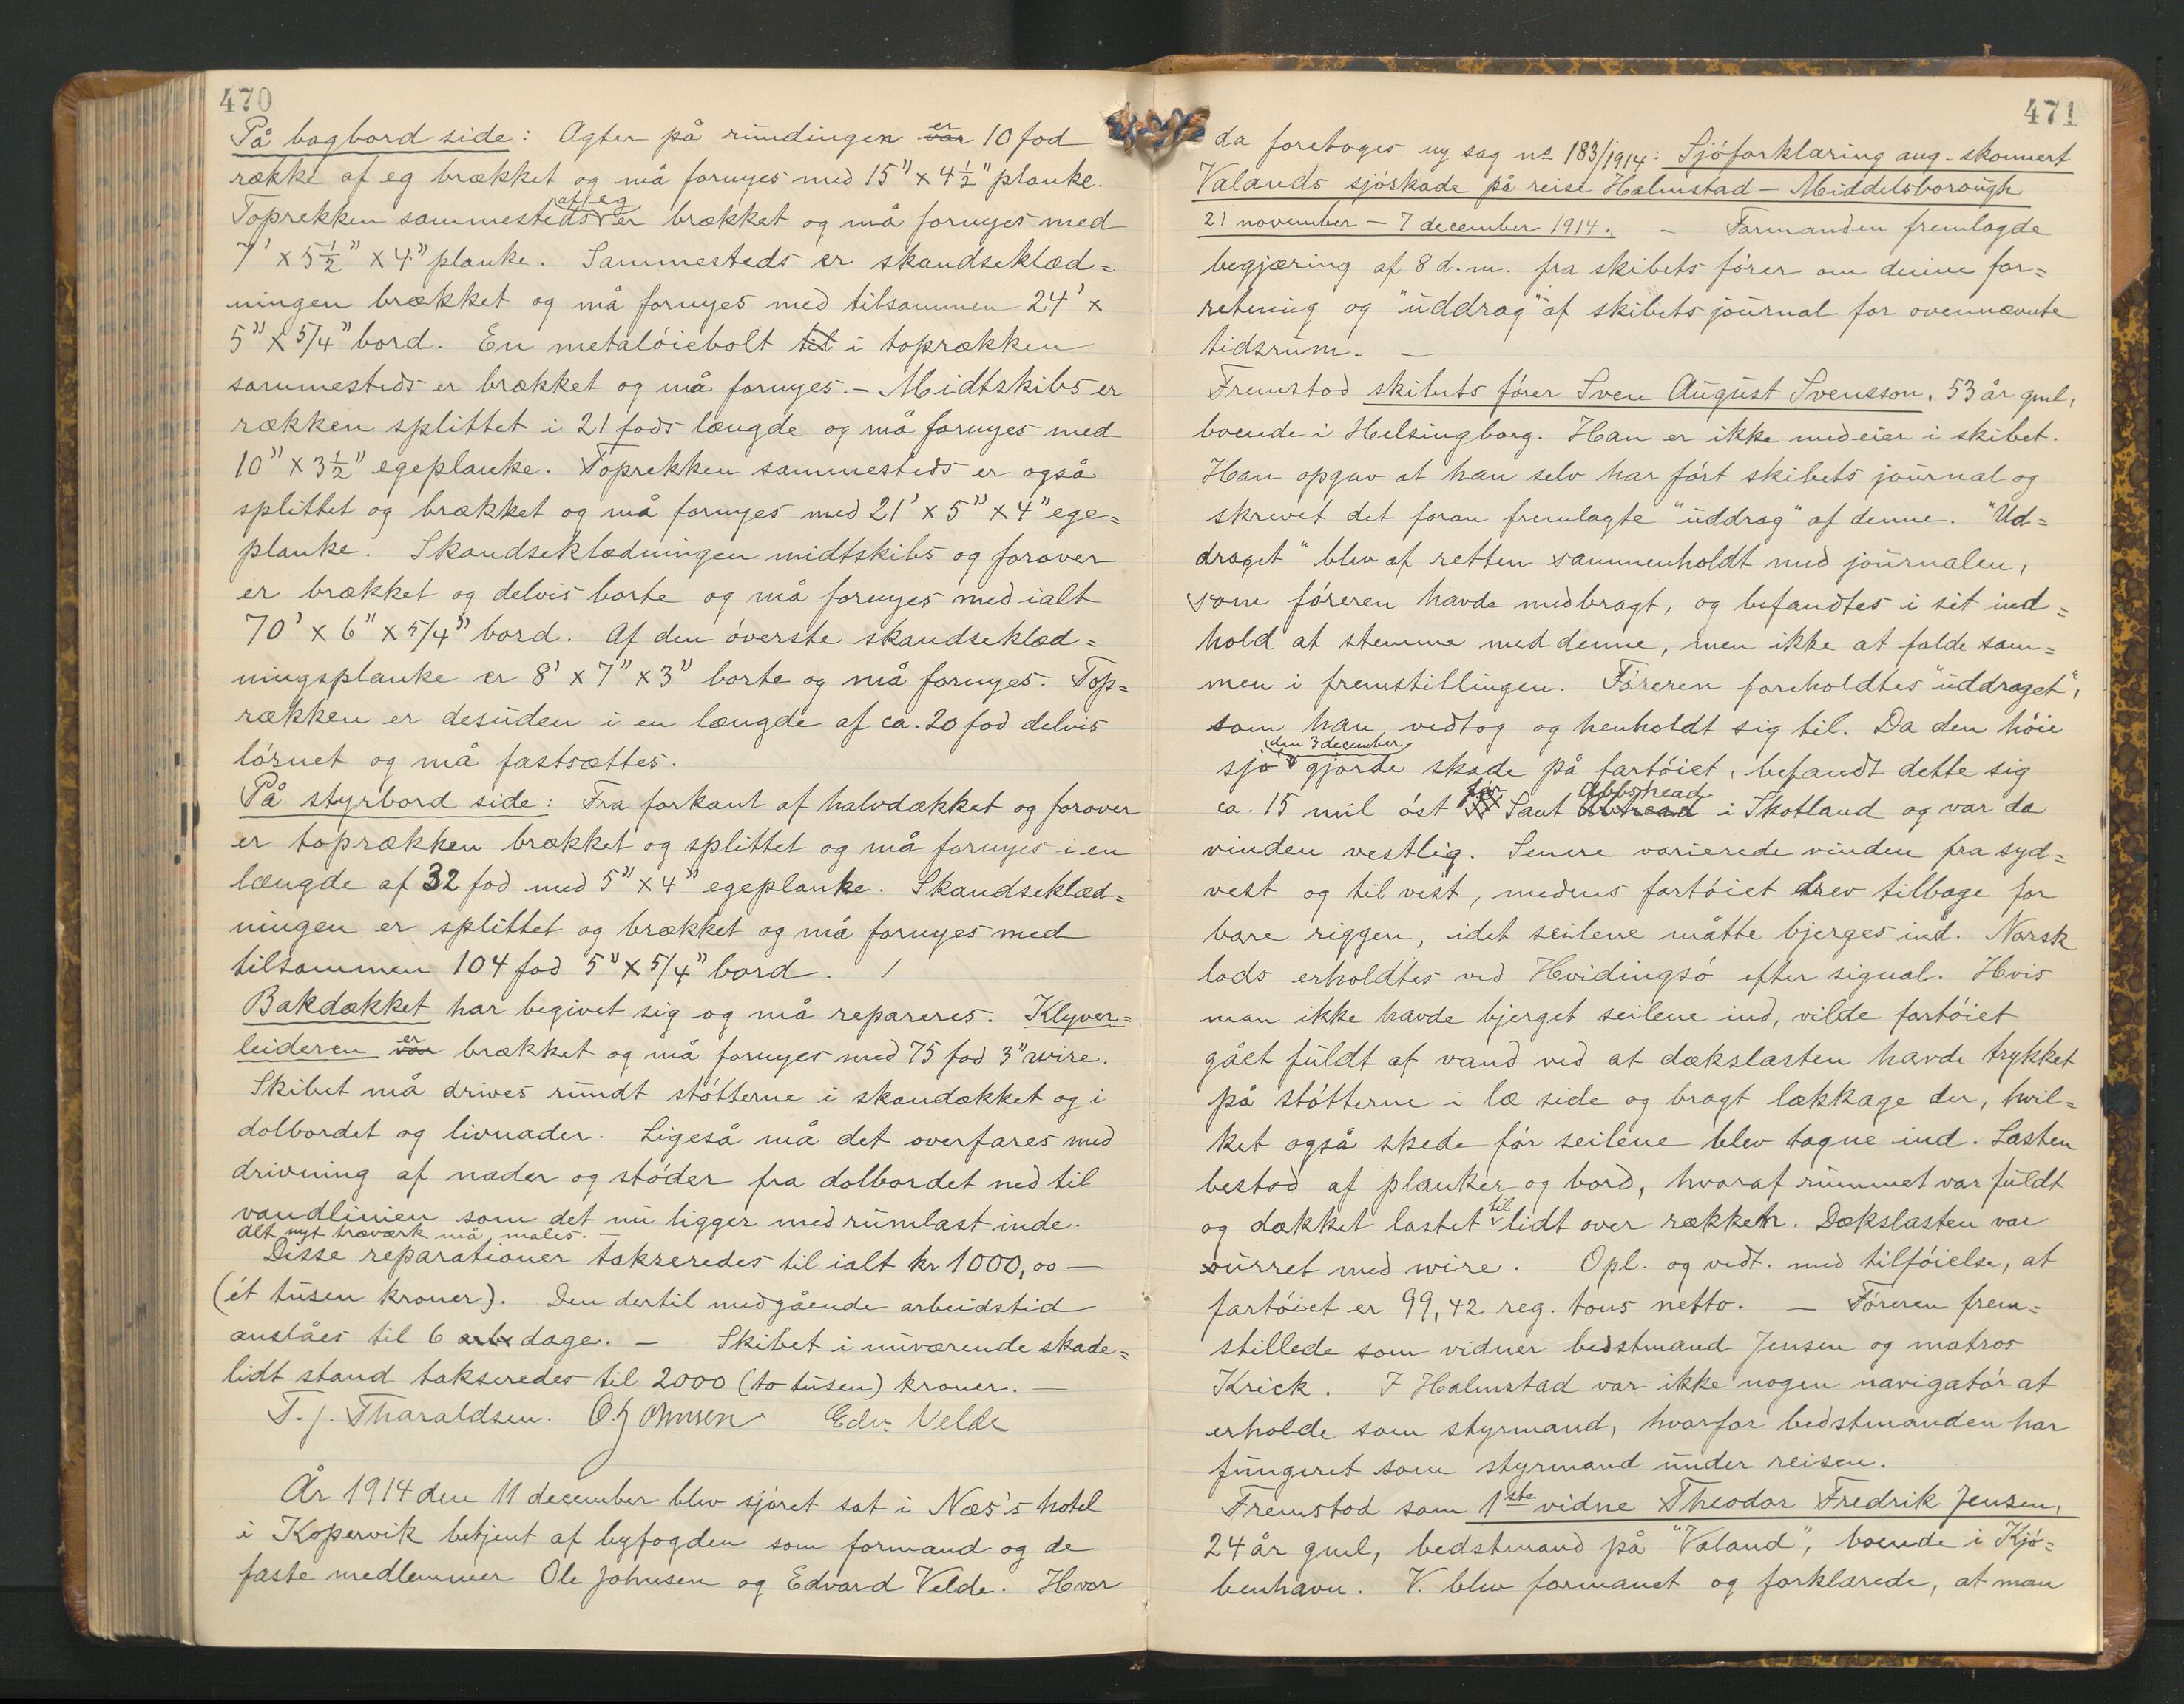 470
På bagbord side: Agter på rundingen er var 10 fod
række af eg brækket og må fornyes med 15" x 4½" planke.
Toprekken sammesteds af eg er brækket og må fornyes med
7' x 5½" x 4" planke. Sammesteds er skandseklæd=
ningen brækket og må fornyes med tilsammen 24' x
5" x 5/4" bord. En metalóiebolt til i toprækken
sammesteds er brækket og må fornyes. - Midtskibs er
rækken splittet i 21 fods længde og må fornyes med
10" x 3½" egeplanke. Toprekken sammesteds er også
splittet og brækket og må fornyes med 21' x 5" x 4" ege=
planke. Skandseklædningen midtskibs og forover
er brækket og delvis borte og må fornyes med ialt
70' x 6" x 5/4" bord. Af den óverste skandseklæd=
ningsplanke er 8' x 7" x 3" borte og må fornyes. Top=
rækken er desuden i en længde af ca. 20 fod delvis
lósnet og må fastsættes.
På styrbord side: Fra forkant af halvdækket og forover
er toprækken brækket og splittet og må fornyes i en
længde af 32 fod med 5" x 4" egeplanke. Skandseklæd=
ningen er splittet og brækket og må fornyes med
tilsammen 104 fod 5" x 5/4" bord. /
Bakdækket har begivet sig og må repareres. Klyver=
leideren er var brækket og må fornyes med 75 fod 3" wire.
Skibet må drives rundt stótterne i skandækket og i
dolbordet og livnader. Ligeså må det overfares med
drivning af nader og stóder fra dolbordet ned til
vandlinien som det nu ligger med rumlast inde.
alt nyt træværk må males. -
Disse reparationer takseredes til ialt kr 1000,00 -
(ét tusen kroner). Den dertil medgående arbeidstid
anslåes til 6 arb dage. - Skibet i nuværende skade=
lidt stand takseredes til 2000 (to tusen) kroner. -
T. J. Tharaldsen. O. Johnsen Edv. Velde
År 1914 den 11 december blev sjóret sat i Næs's hotel
i Kopervik betjent af byfogden som formand og de
faste medlemmer Ole Johnsen og Edvard Velde. Hvor
471
da foretoges ny sag no 183/1914: Sjóforklaring ang. skonnert
Valands sjóskade på reise Halmstad - Middelsborough
21 november - 7 december 1914. - Formanden fremlagde
begjæring af 8 d. m. fra skibets fórer om denne for=
retning og "uddrag" af skibets journal for ovennævnte
tidsrum. -
Fremstod skibets fórer Sven August Svensson, 53 år gml,
boende i Helsingborg. Han er ikke medeier i skibet.
Han opgav at han selv har fórt skibets journal og
skrevet det foran fremlagte "uddrag" af denne. "Ud=
draget" blev af retten sammenholdt med journalen,
som fóreren havde medbragt, og befandtes i sit ind=
hold at stemme med denne, men ikke at falde sam=
men i fremstillingen. Fóreren foreholdtes "uddraget",
som han vedtog og henholdt sig til. Da den hóie
sjó den 3 december gjorde skade på fartóiet, befandt dette sig
ca. 15 mil óst for Sant Abbshead i Skotland og var da
vinden vestlig. Senere varierede vinden fra syd=
vest og til vest, medens fartóiet drev tilbage for
bare riggen, idet seilene måtte bjerges ind. Norsk
lods erholdtes ved Hvidingsó efter signal. Hvis
man ikke havde bjerget seilene ind, vilde fartóiet
gået fuldt af vand ved at dækslasten havde trykket
på stótterne i læ side og bragt lækkage der, hvil=
ket også skede fór seilene blev tagne ind. Lasten
bestod af planker og bord, hvoraf rummet var fuldt
og dækket lastet til lidt over rækken. Dækslasten var
surret med wire. Opl. og vedt. med tilfóielse, at
fartóiet er 99,42 reg. tons netto. - Fóreren frem=
stillede som vidner bedstmand Jensen og matros
Krick. I Halmstad var ikke nogen navigatór at
erholde som styrmand, hvorfor bedstmanden har
fungeret som styrmand under reisen.
Fremstod som 1ste vidne Theodor Fredrik Jensen,
24 år gml, bedstmand på "Valand", boende i Kjó=
benhavn. V. blev formanet og forklarede, at man